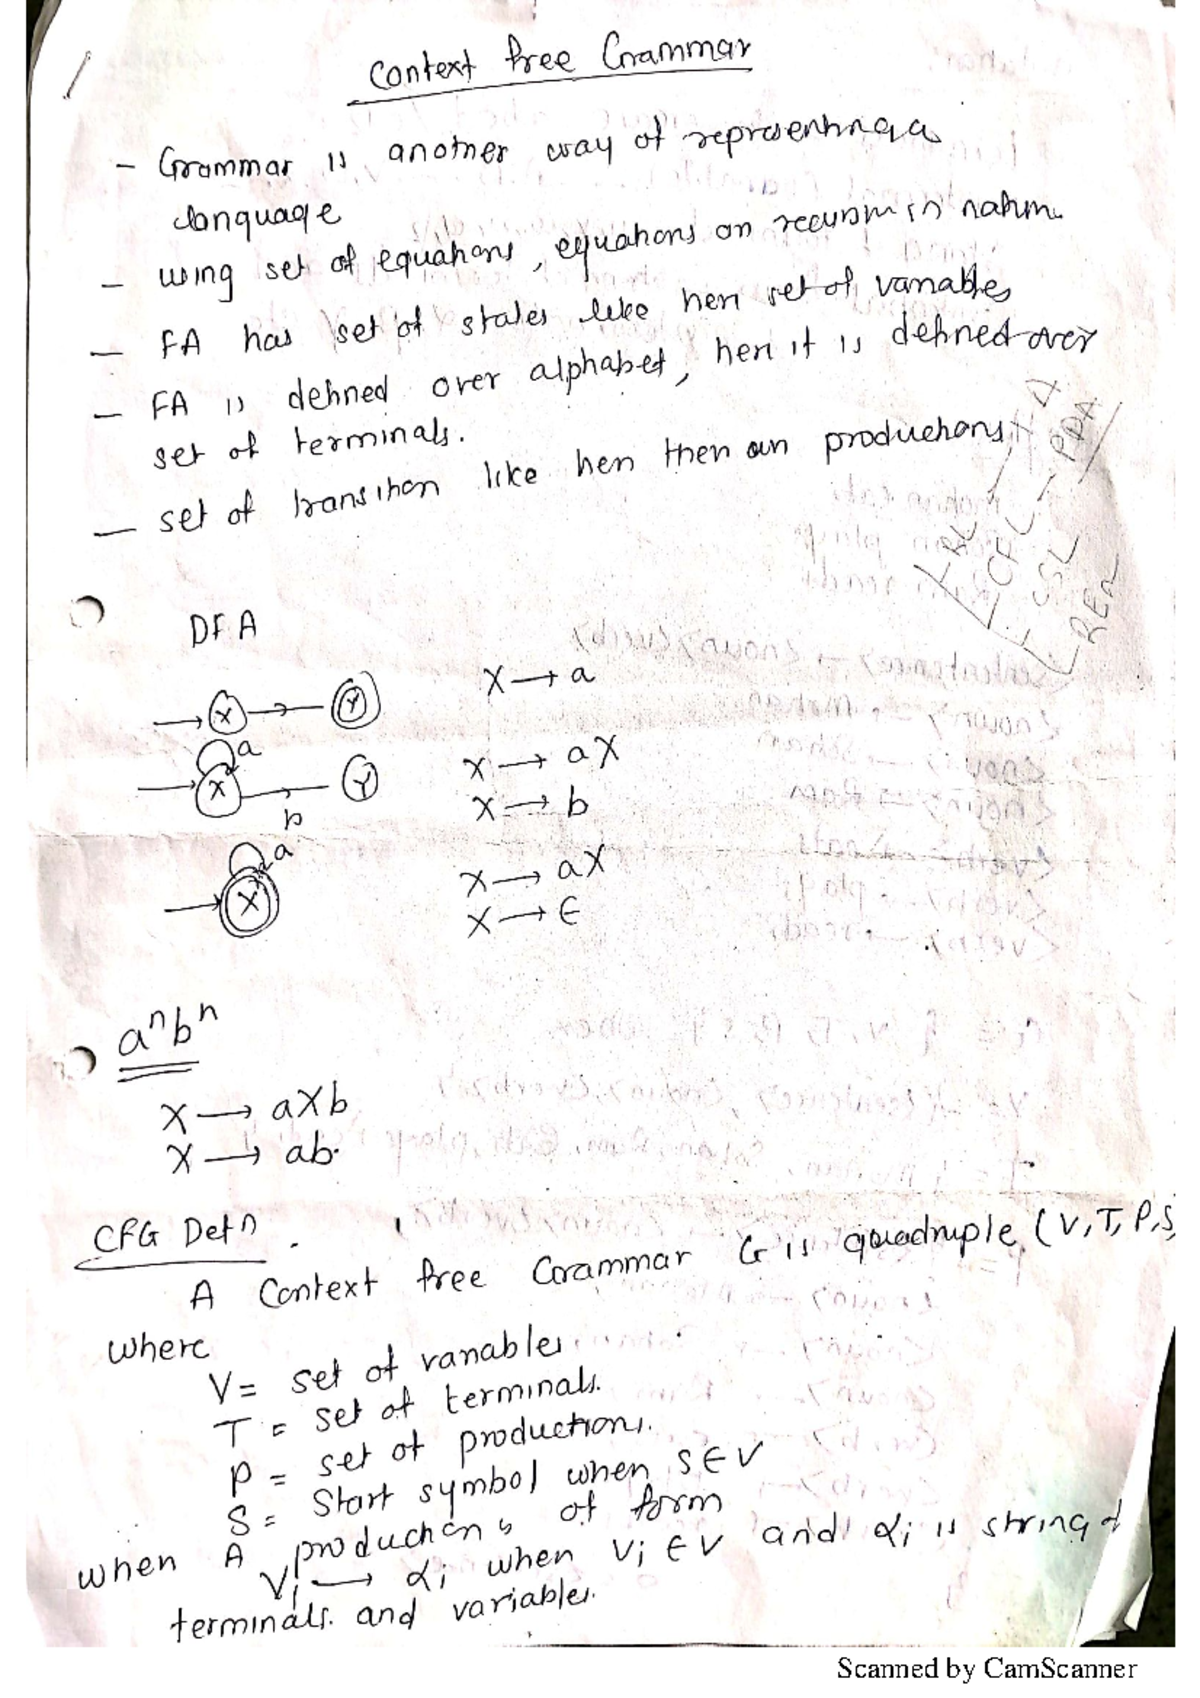 Context free Grammar
- Grammar is another way of representing a
language
- using set of equations, equations are recursive in nature.
- FA has set of states like here set of variables
- FA is defined over alphabet, here it is defined over
set of terminals.
- set of transition like here there are productions
RL
CFL - PDA
CSL
REL
DFA
X → Y
X → a
a
X → Y
b
X → aX
X → b
a
X
X → aX
X → ε
aⁿbⁿ
X → aXb
X → ab.
CFG Defⁿ.
A Context free Grammar G is quadruple (V, T, P, S
where
V = set of variables
T = set of terminals.
P = set of productions.
S = Start symbol where S ∈ V
where A productions of form
Vi → αi where Vi ∈ V and αi is string of
terminals. and variables.
Scanned by CamScanner